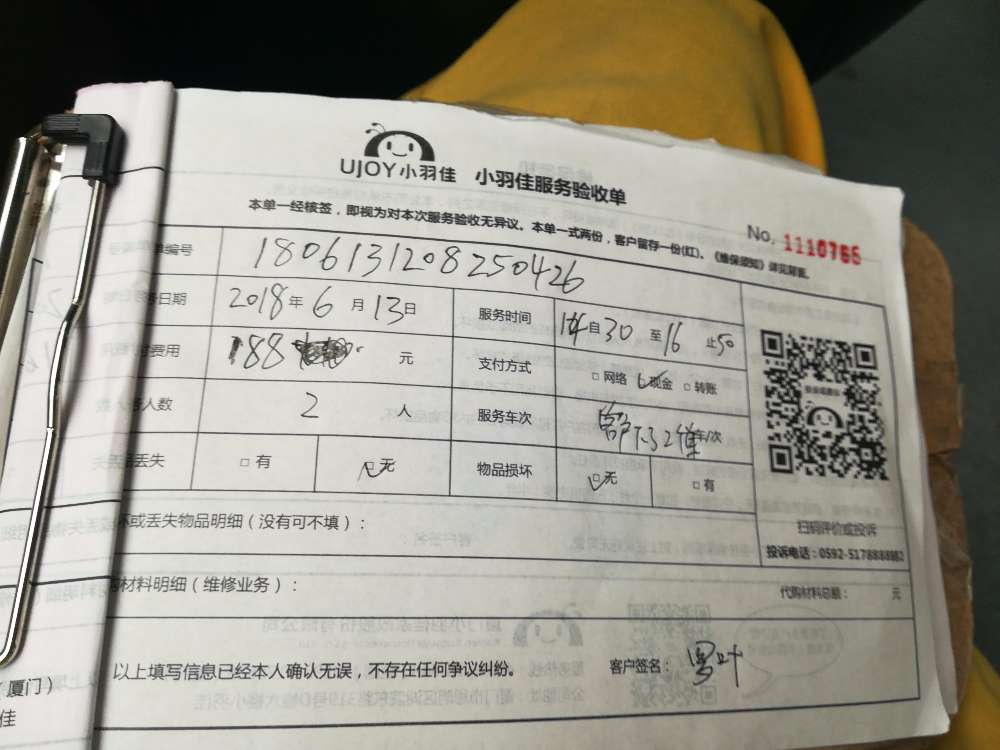 UJOY小羽佳 小羽佳服务验收单
本单一经核签，即视为对本次服务验收无异议。本单一式两份，客户留存一份(红)。《维保须知》详见背面。
No. 1110766
编号 1806131208250426
日期 2018年6月13日 服务时间 14自30至16止50
费用 188 元 支付方式 □网络 ☑现金 □转账
人数 2 人 服务车次 车/次
丢失 □有 ☑无 物品损坏 ☑无 □有
坏或丢失物品明细（没有可不填）：
扫码评价或投诉
投诉电话：0592-5178888
材料明细（维修业务）：
代购材料总额： 元
以上填写信息已经本人确认无误，不存在任何争议纠纷。 客户签名：
厦门）
佳